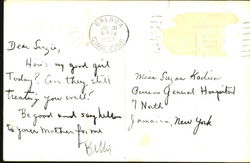 Dear Suzie,
How's my good girl
Today? Are they still
treating you well?
Be good and say hello
to your Mother for me
Miss Susan
Queens General Hospital
7 North
Jamaica, New York